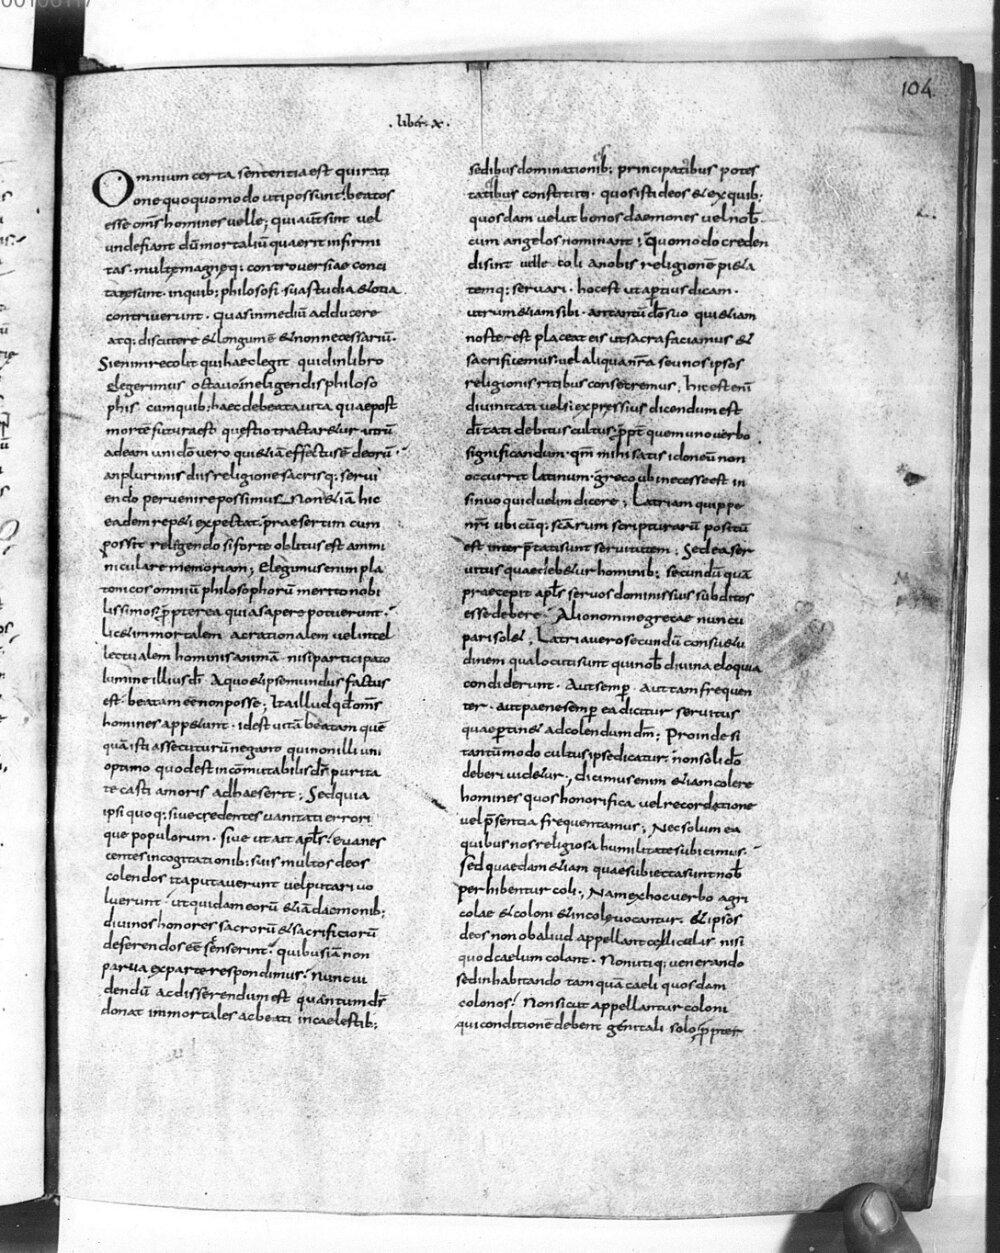 104
.liber. x.
Omnium certa sententia est qui rati
one quoquo modo uti possunt. beatos
esse oms homines uelle; qui aut sint uel
unde fiant dū mortaliū quaerit infirmi
tas. multę magneq; controuersiae conci
tatę sunt. in quib; philosofi sua studia & otia
contriuerunt. quas in mediū adducere
atq; discutere & longum ē & non necessariū.
Si enim recolit qui haec legit quid in libro
egerimus octauo in eligendis philoso
phis cum quib; haec de beata uita quae post
mortē futura est questio tractar&ur utrū
ad eam uni dō uero qui &iā effectus ē deorū
an plurimis diis religione sacrisq; serui
endo peruenire possimus Non &iā hic
eadem rep&i expectat praesertim cum
possit relegendo si forte oblitus est ammi
niculare memoriam; Elegimus enim pla
tonicos omniū philosophorū merito nobi
lissimos ppterea quia sapere potuerunt.
lic& immortalem ac rationalem uel intel
lectualem hominis animā. nisi participato
lumine illius dī. A quo & ipse mundus factus
est. beatam eē non posse; Ita illud qd oms
homines app&unt. id est uitā beatam quē
quā isti assecuturū negant qui non illi uni
optimo quod est incōmutabilis ds purita
te casti amoris adhaeserit; Sed quia
ipsi quoq; siue cedentes uanitati errori
que populorum. siue ut ait apls. euanes
centes in cogitationib; suis multos deos
colendos ita putauerunt uel putari uo
luerunt. ut quidam eorū &iā daemonib;
diuinos honores sacrorū & sacrificiorū
deferendos eē censerint. quibus iā non
parua ex parte respondimus. nunc ui
dendū ac disserendum est quantum ds
donat immortales ac beati in caelestib;
sedibus dominationib; principatibus potes
tatibus constituti. quos isti deos & ex quib;
quosdam uelut bonos daemones uel nob
cum angelos nominant; quomodo creden
di sint uelle coli a nobis religione pi&a
tem q; seruari. hoc est ut aptius dicam.
utrum &iam sibi. an tantū dō suo qui &iam
noster est placeat eis ut sacra faciamus &
sacrificemus. uel aliqua nra seu nos ipsos
religionis ritibus consecremus; hic est enī
diuinitati uel si expressius dicendum est
dītati debitus cultus ppt quem uno uerbo
significandum. qm mihi satis idoneū non
occurrit latinum. greco ubi necesse est in
sinuo quid uelim dicere; Latriam quippe
nri ubicūq; scarum scripturarū positū
est interptati sunt seruitutem; Sed ea ser
uitus quae deb&ur hominib; secundū quā
praecepit apls seruos dominis suis subditos
esse debere. Alio nomine grecae nuncu
pari sol&; Latria uero secundū consu&u
dinem qua locuti sunt qui nob diuina eloquia
condiderunt. Aut semp. aut tam frequen
ter. aut paene semp ea dicitur seruitus
quae ptin& ad colendum dm; Proinde si
tantūmodo cultus ipse dicatur. non soli dō
deberi uid&ur; dicimus enim &iam colere
homines quos honorifica uel recordatione
uel psentia frequentamus; Nec solum ea
quibus nos religiosa humilitate subicimus.
sed quaedam &iam quae subiecta sunt nob
perhibentur coli; Nam ex hoc uerbo agri
colae & coloni & incolę uocantur. & ipsos
deos non ob aliud appellant cęlicolas nisi
quod caelum colant. Non utiq; uenerando
sed inhabitando tamquā caeli quosdam
colonos. Non sicut appellantur coloni
qui conditione debent genitali solo ppter